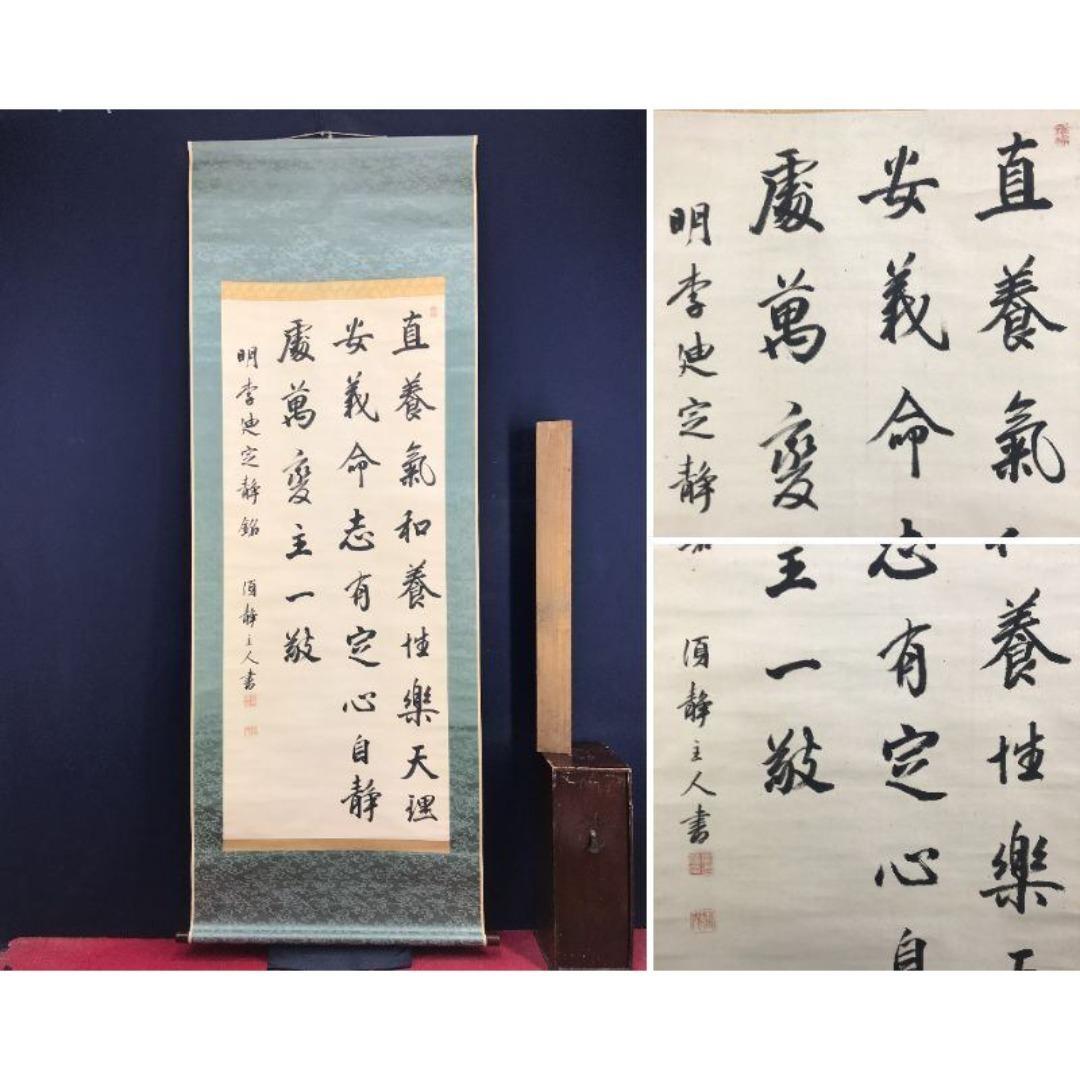 直養氣和養性樂天理
安義命志有定心自静
處萬變主一敬
明李迪定静銘 須静主人書
直養氣
安義命
處萬變
明李迪定静
養性樂
志有定心自
主一敬
須静主人書